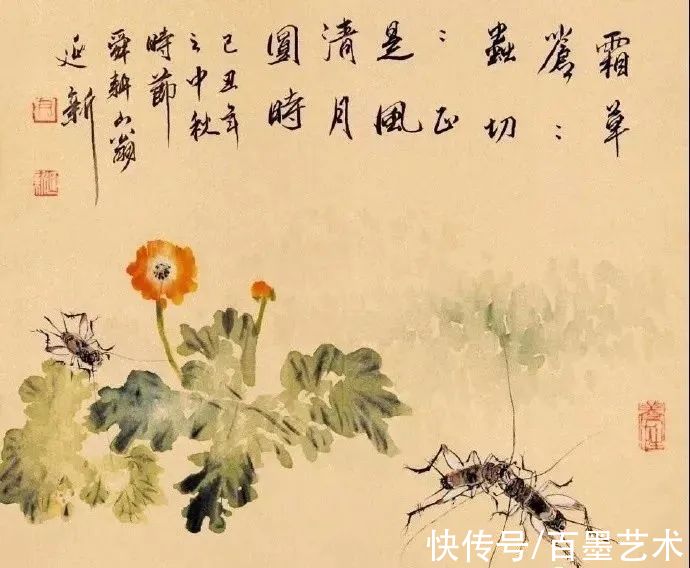 霜草
蒼〻
蟲切
〻正
是風
清月
圓時
己丑年
之中秋
時節
舜耕山翁
延新
快传号/百墨艺术